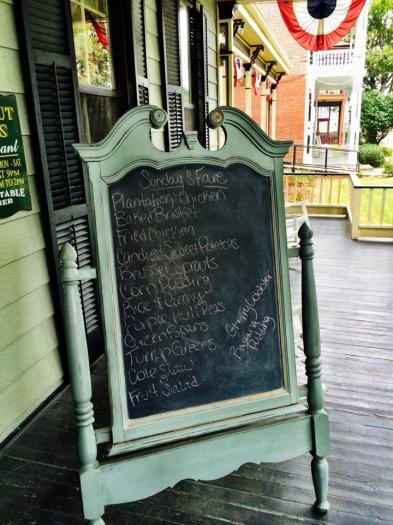 Sunday's Fare
Plantation Chicken
Baked Brisket
Fried Chicken
Candied Sweet Potatoes
Brussel Sprouts
Corn Pudding
Rice & Gravy
Purple Hull Peas
Green Beans
Turnip Greens
Cole Slaw
Fruit Salad
Cobbler
Pudding
MON - SAT